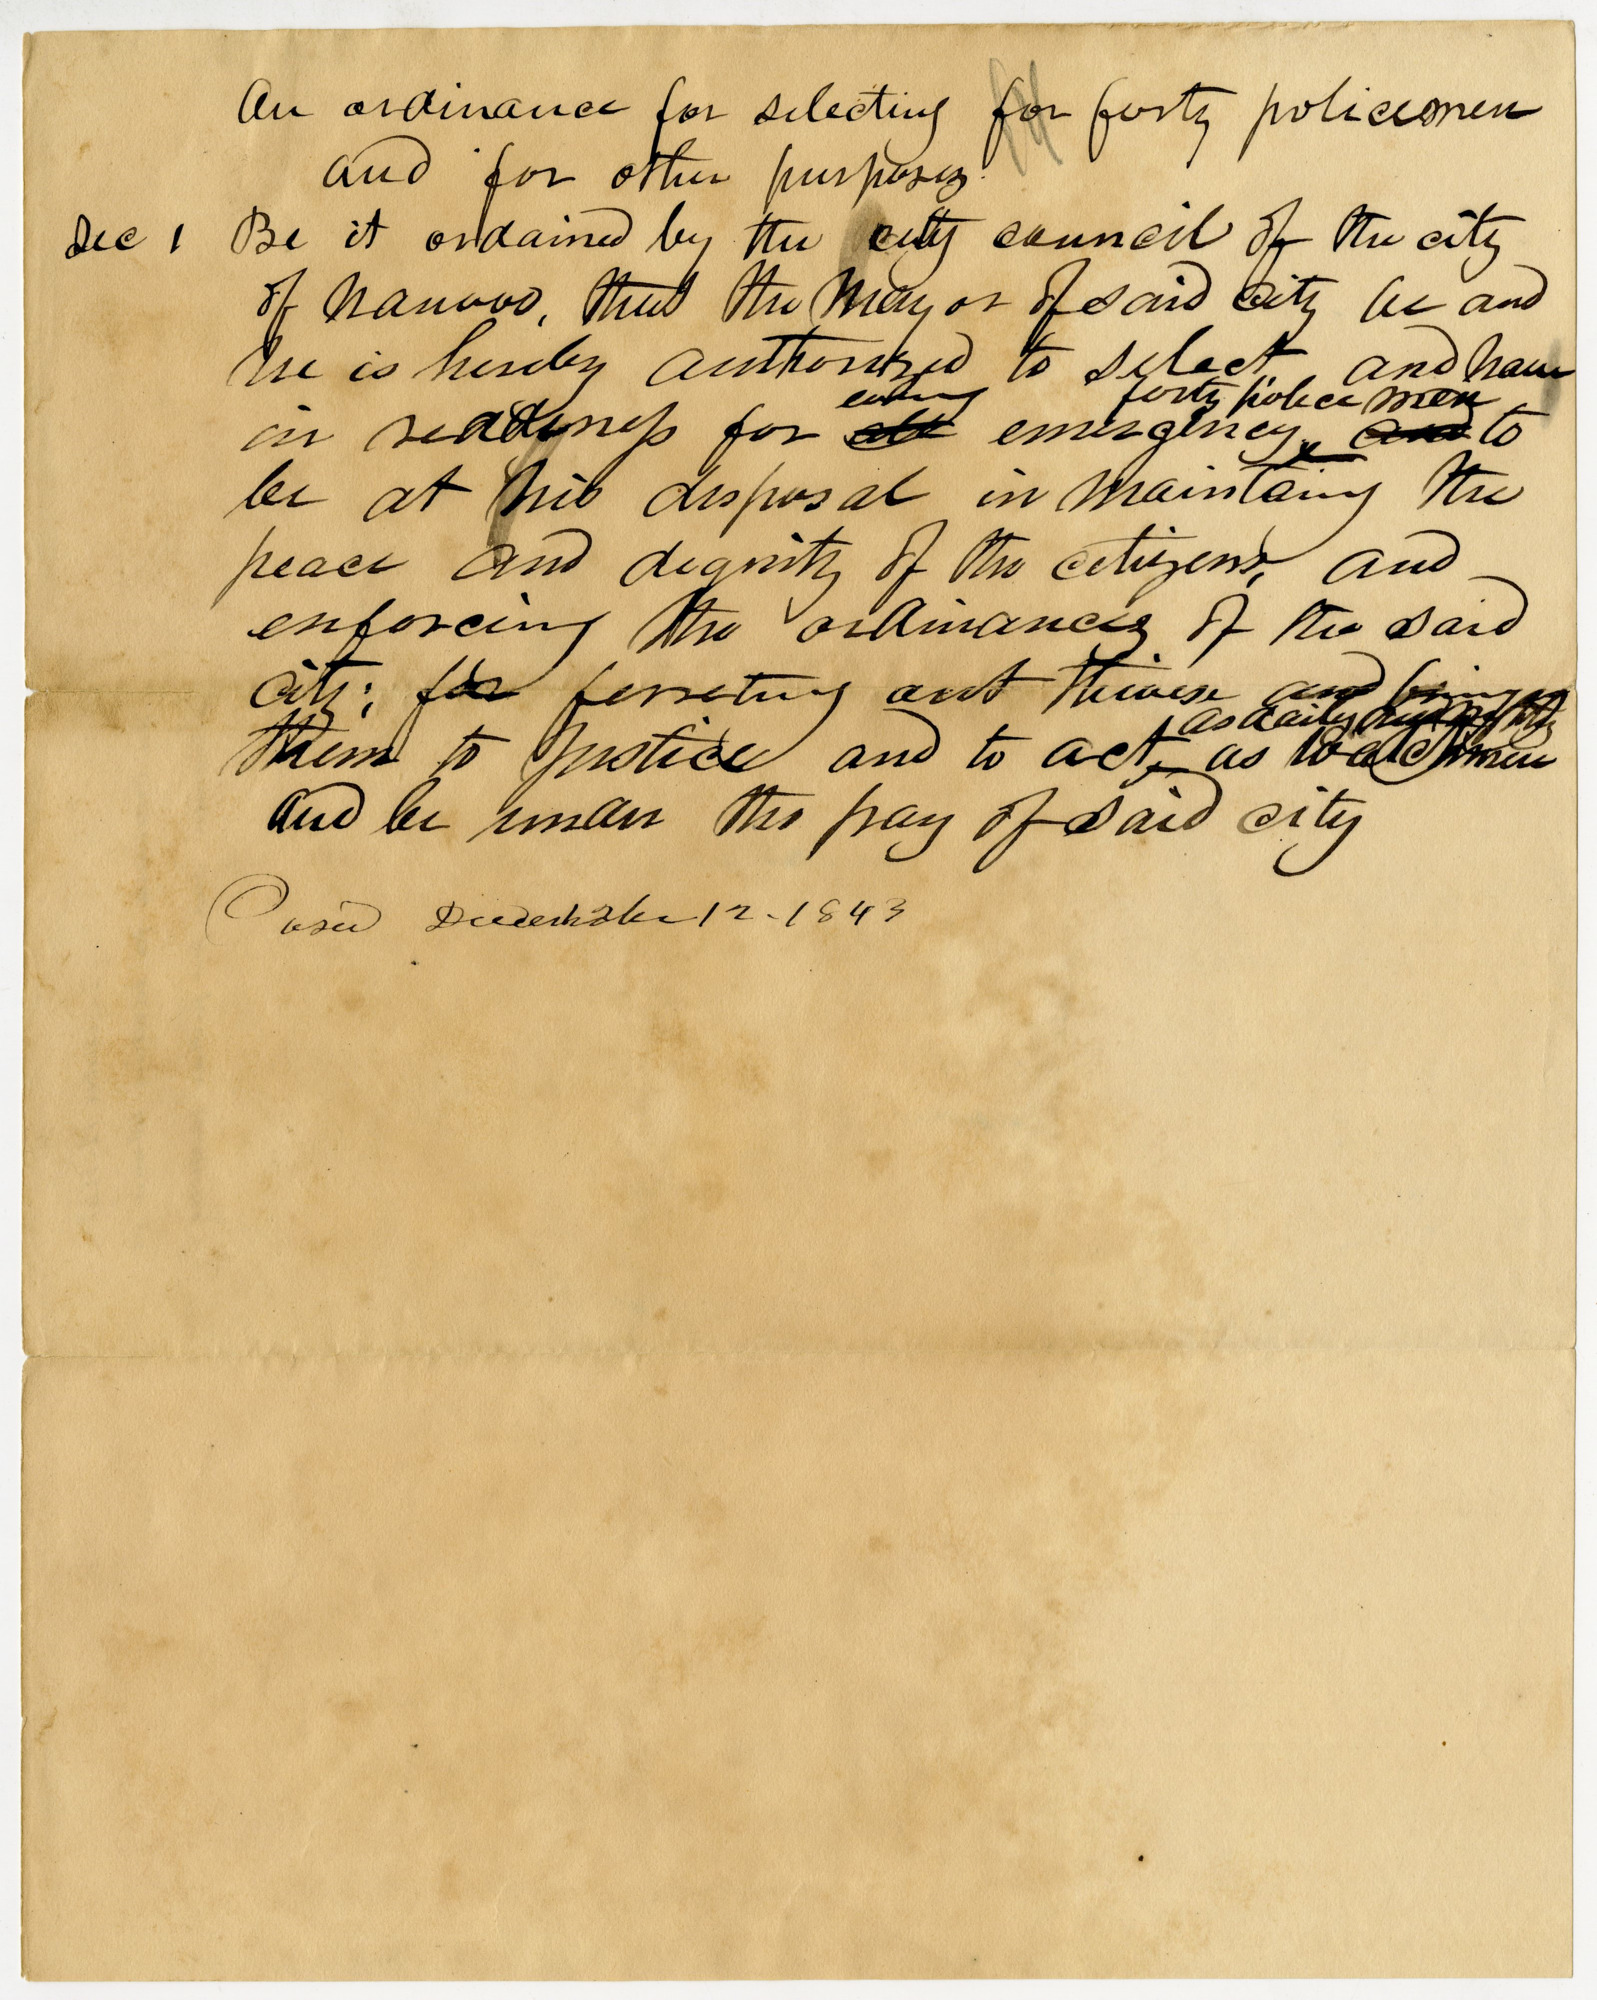 An ordinance for selecting for forty policemen
and for other purposes.
Sec 1 Be it ordained by the city council of the city
of Nauvoo, that the Mayor of said city be and
he is hereby authorized to select and have
every forty police men
in readiness for all emergency, and to
be at his disposal in maintaing the
peace and dignity of the citizens, and
enforcing the ordinances of the said
city; for ferreting out thieves and bringing
as daily and nightly
them to Justice and to act, as watchmen
and be under the pay of said city
Passed December 12 - 1843